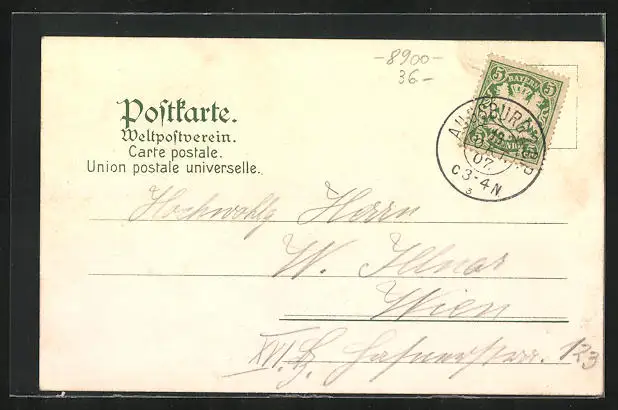 -8900-
36.-
5 BAYERN 5
AUGSBURG
07
3-4 N
Postkarte.
Weltpostverein.
Carte postale.
Union postale universelle.
Hochwohlg Herrn
W. Illner
Wien
XVI. 123